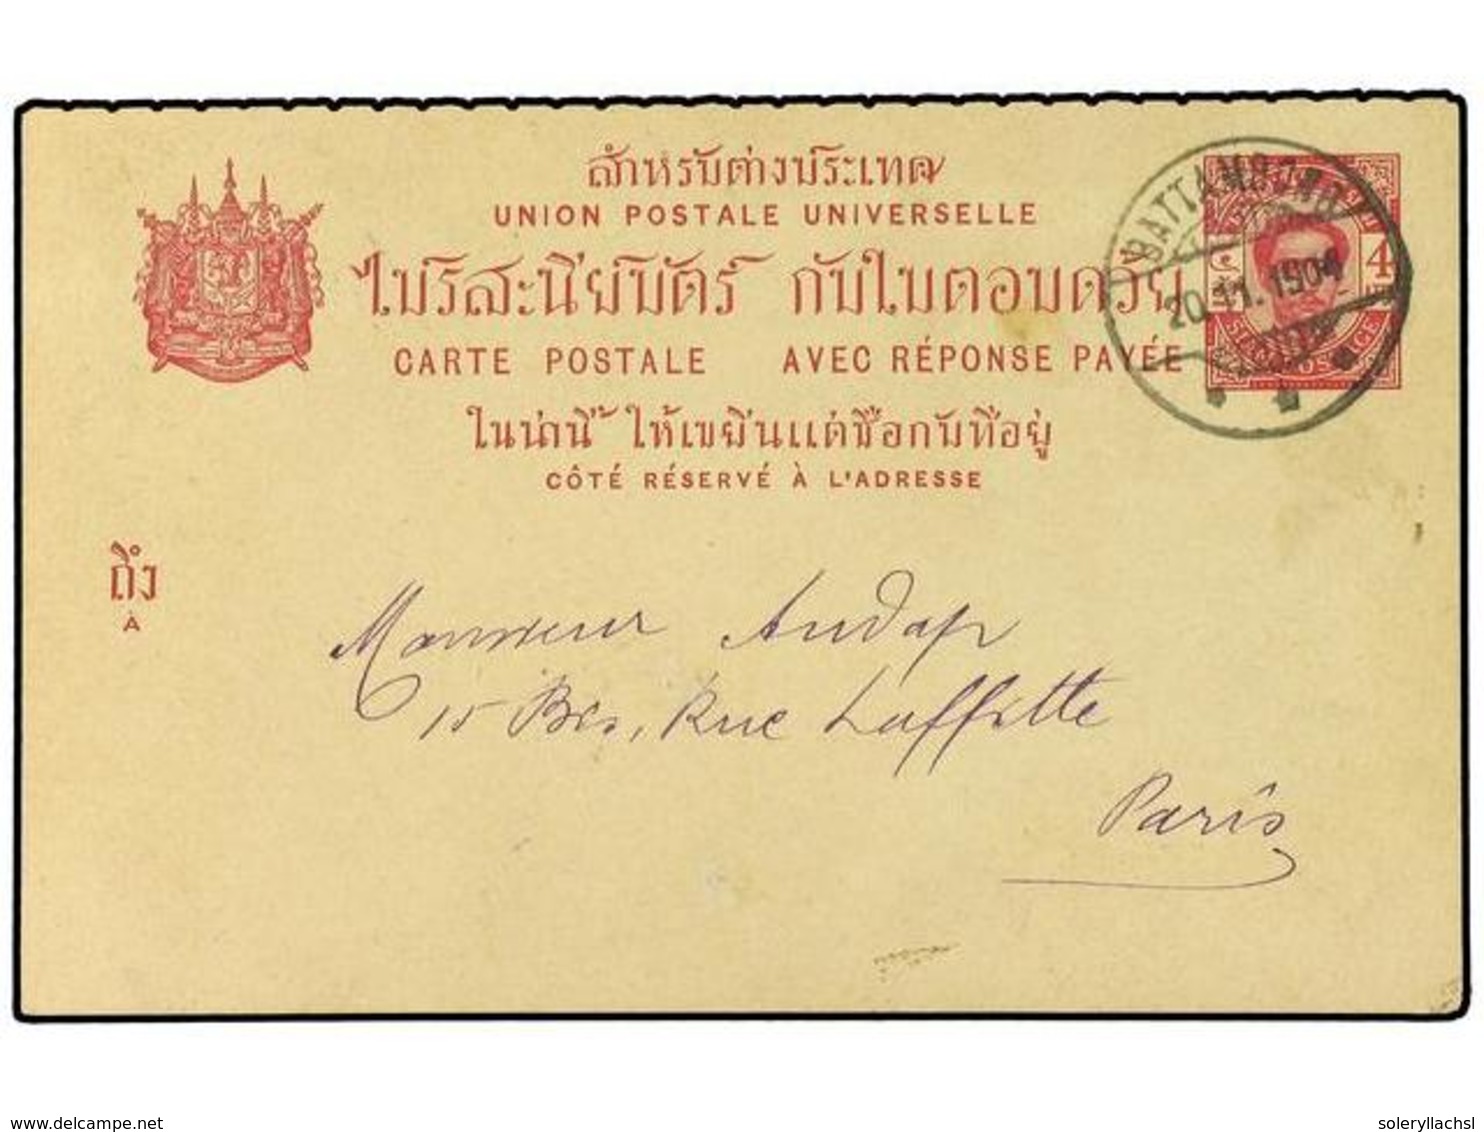 สำหรับต่างประเทศ
UNION POSTALE UNIVERSELLE
ไปรสะนียบัตร์ กับใบตอบด้วย
CARTE POSTALE AVEC RÉPONSE PAYÉE
ในน่านี้ ให้เขยีนแต่ชื่อกับที่อยู่
CÔTÉ RÉSERVÉ À L'ADRESSE
BATTAMBONG
20.11.1904
4
ถึง
À
Monsieur Audap
15 Bis, Rue Laffitte
Paris
delcampe.net
soleryllachsl